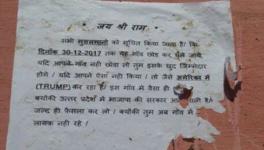 * जय श्री राम *
सभी मुसलमानों को सूचित किया जाता है। कि
दिनांक 30-12-2017 तक यह गाँव छोड़ कर चले जाये
यदि आपने गाँव नही छोड़ा तो तुम इसके खुद जिम्मेदार
होंगे। यदि आपने ऐसा नही किया। तो जैसे अमेरिका में
(TRUMP) कर रहा है। इस गाँव में वैसा ही
क्योंकी उत्तर प्रदेश में भाजपा की सरकार
जल्द ही फैसला कर लो। क्योंकी तुम अब गाँव में
लायक नही रहे।